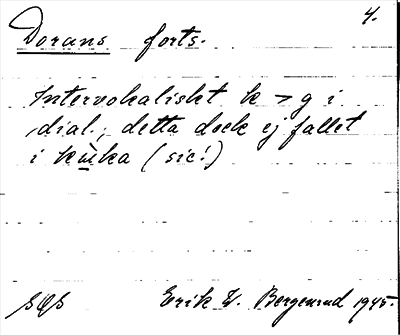 4.
Dorans forts.
Intervokaliskt k > g i
dial.; detta dock ej fallet
i kùka (sic!)
SOS Erik W. Bergenrud 1945.